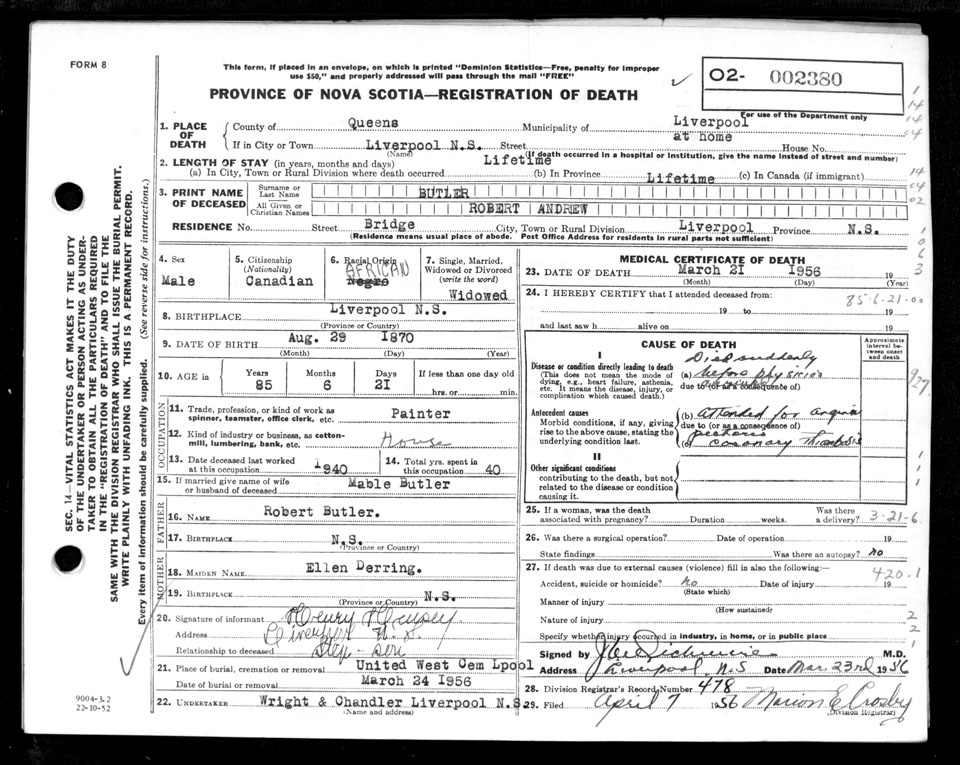 FORM 8
This form, if placed in an envelope, on which is printed "Dominion Statistics—Free, penalty for improper
use $50," and properly addressed will pass through the mail "FREE"
PROVINCE OF NOVA SCOTIA—REGISTRATION OF DEATH
O2- 002380
For use of the Department only
1. PLACE OF DEATH
County of Queens Municipality of Liverpool
If in City or Town Liverpool N.S. Street at home House No.
(Name) (If death occurred in a hospital or institution, give the name instead of street and number)
2. LENGTH OF STAY (in years, months and days) Lifetime
(a) In City, Town or Rural Division where death occurred (b) In Province Lifetime (c) In Canada (if immigrant)
3. PRINT NAME OF DECEASED
Surname or Last Name BUTLER
All Given or Christian Names ROBERT ANDREW
RESIDENCE No. Street Bridge City, Town or Rural Division Liverpool Province N.S.
(Residence means usual place of abode. Post Office Address for residents in rural parts not sufficient)
4. Sex Male
5. Citizenship (Nationality) Canadian
6. Racial Origin AFRICAN Negro
7. Single, Married, Widowed or Divorced (write the word) Widowed
8. BIRTHPLACE Liverpool N.S.
(Province or Country)
9. DATE OF BIRTH Aug. 29 1870
(Month) (Day) (Year)
10. AGE in Years 85 Months 6 Days 2I If less than one day old hrs. or min.
OCCUPATION
11. Trade, profession, or kind of work as spinner, teamster, office clerk, etc. Painter
12. Kind of industry or business, as cotton-mill, lumbering, bank, etc. House
13. Date deceased last worked at this occupation 1940
14. Total yrs. spent in this occupation 40
15. If married give name of wife or husband of deceased Mable Butler
FATHER
16. NAME Robert Butler.
17. BIRTHPLACE N.S.
(Province or Country)
MOTHER
18. MAIDEN NAME Ellen Derring.
19. BIRTHPLACE N.S.
(Province or Country)
20. Signature of informant Henry
Address Liverpool N.S.
Relationship to deceased Step-son
21. Place of burial, cremation or removal United West Cem Lpool
Date of burial or removal March 24 I956
22. UNDERTAKER Wright & Chandler Liverpool N.S.
(Name and address)
MEDICAL CERTIFICATE OF DEATH
23. DATE OF DEATH March 2I I956 19
(Month) (Day) (Year)
24. I HEREBY CERTIFY that I attended deceased from:
85-6-21-00
19 to 19
and last saw h alive on 19
CAUSE OF DEATH
Approximate interval between onset and death
I
Disease or condition directly leading to death
(This does not mean the mode of dying, e.g., heart failure, asthenia, etc. It means the disease, injury, or complication which caused death.)
Died suddenly
(a) before physician
due to (or as a consequence of)
Antecedent causes
Morbid conditions, if any, giving rise to the above cause, stating the underlying condition last.
(b) attended for angina
due to (or as a consequence of)
pectoris
(c) Coronary Thrombosis
II
Other significant conditions contributing to the death, but not related to the disease or condition causing it.
25. If a woman, was the death associated with pregnancy? Duration weeks. Was there a delivery? 3-21-6
26. Was there a surgical operation? Date of operation 19
State findings Was there an autopsy? no
27. If death was due to external causes (violence) fill in also the following:
420.1
Accident, suicide or homicide? no Date of injury 19
(State which)
Manner of injury
(How sustained)
Nature of injury
Specify whether injury occurred in industry, in home, or in public place
Signed by M.D.
Address Liverpool, N.S Date Mar. 23rd 1956
28. Division Registrar's Record Number 478
29. Filed April 7 1956 Marion E Crosby
(Division Registrar)
SEC. 14—VITAL STATISTICS ACT MAKES IT THE DUTY
OF THE UNDERTAKER OR PERSON ACTING AS UNDER-
TAKER TO OBTAIN ALL THE PARTICULARS REQUIRED
IN THE "REGISTRATION OF DEATH" AND TO FILE THE
SAME WITH THE DIVISION REGISTRAR WHO SHALL ISSUE THE BURIAL PERMIT.
WRITE PLAINLY WITH UNFADING INK. THIS IS A PERMANENT RECORD.
Every item of information should be carefully supplied. (See reverse side for instructions.)
9004-3.2
22-10-52
1
14
14
04
14
04
02
1
0
6
3
927
1
1
1
2
2